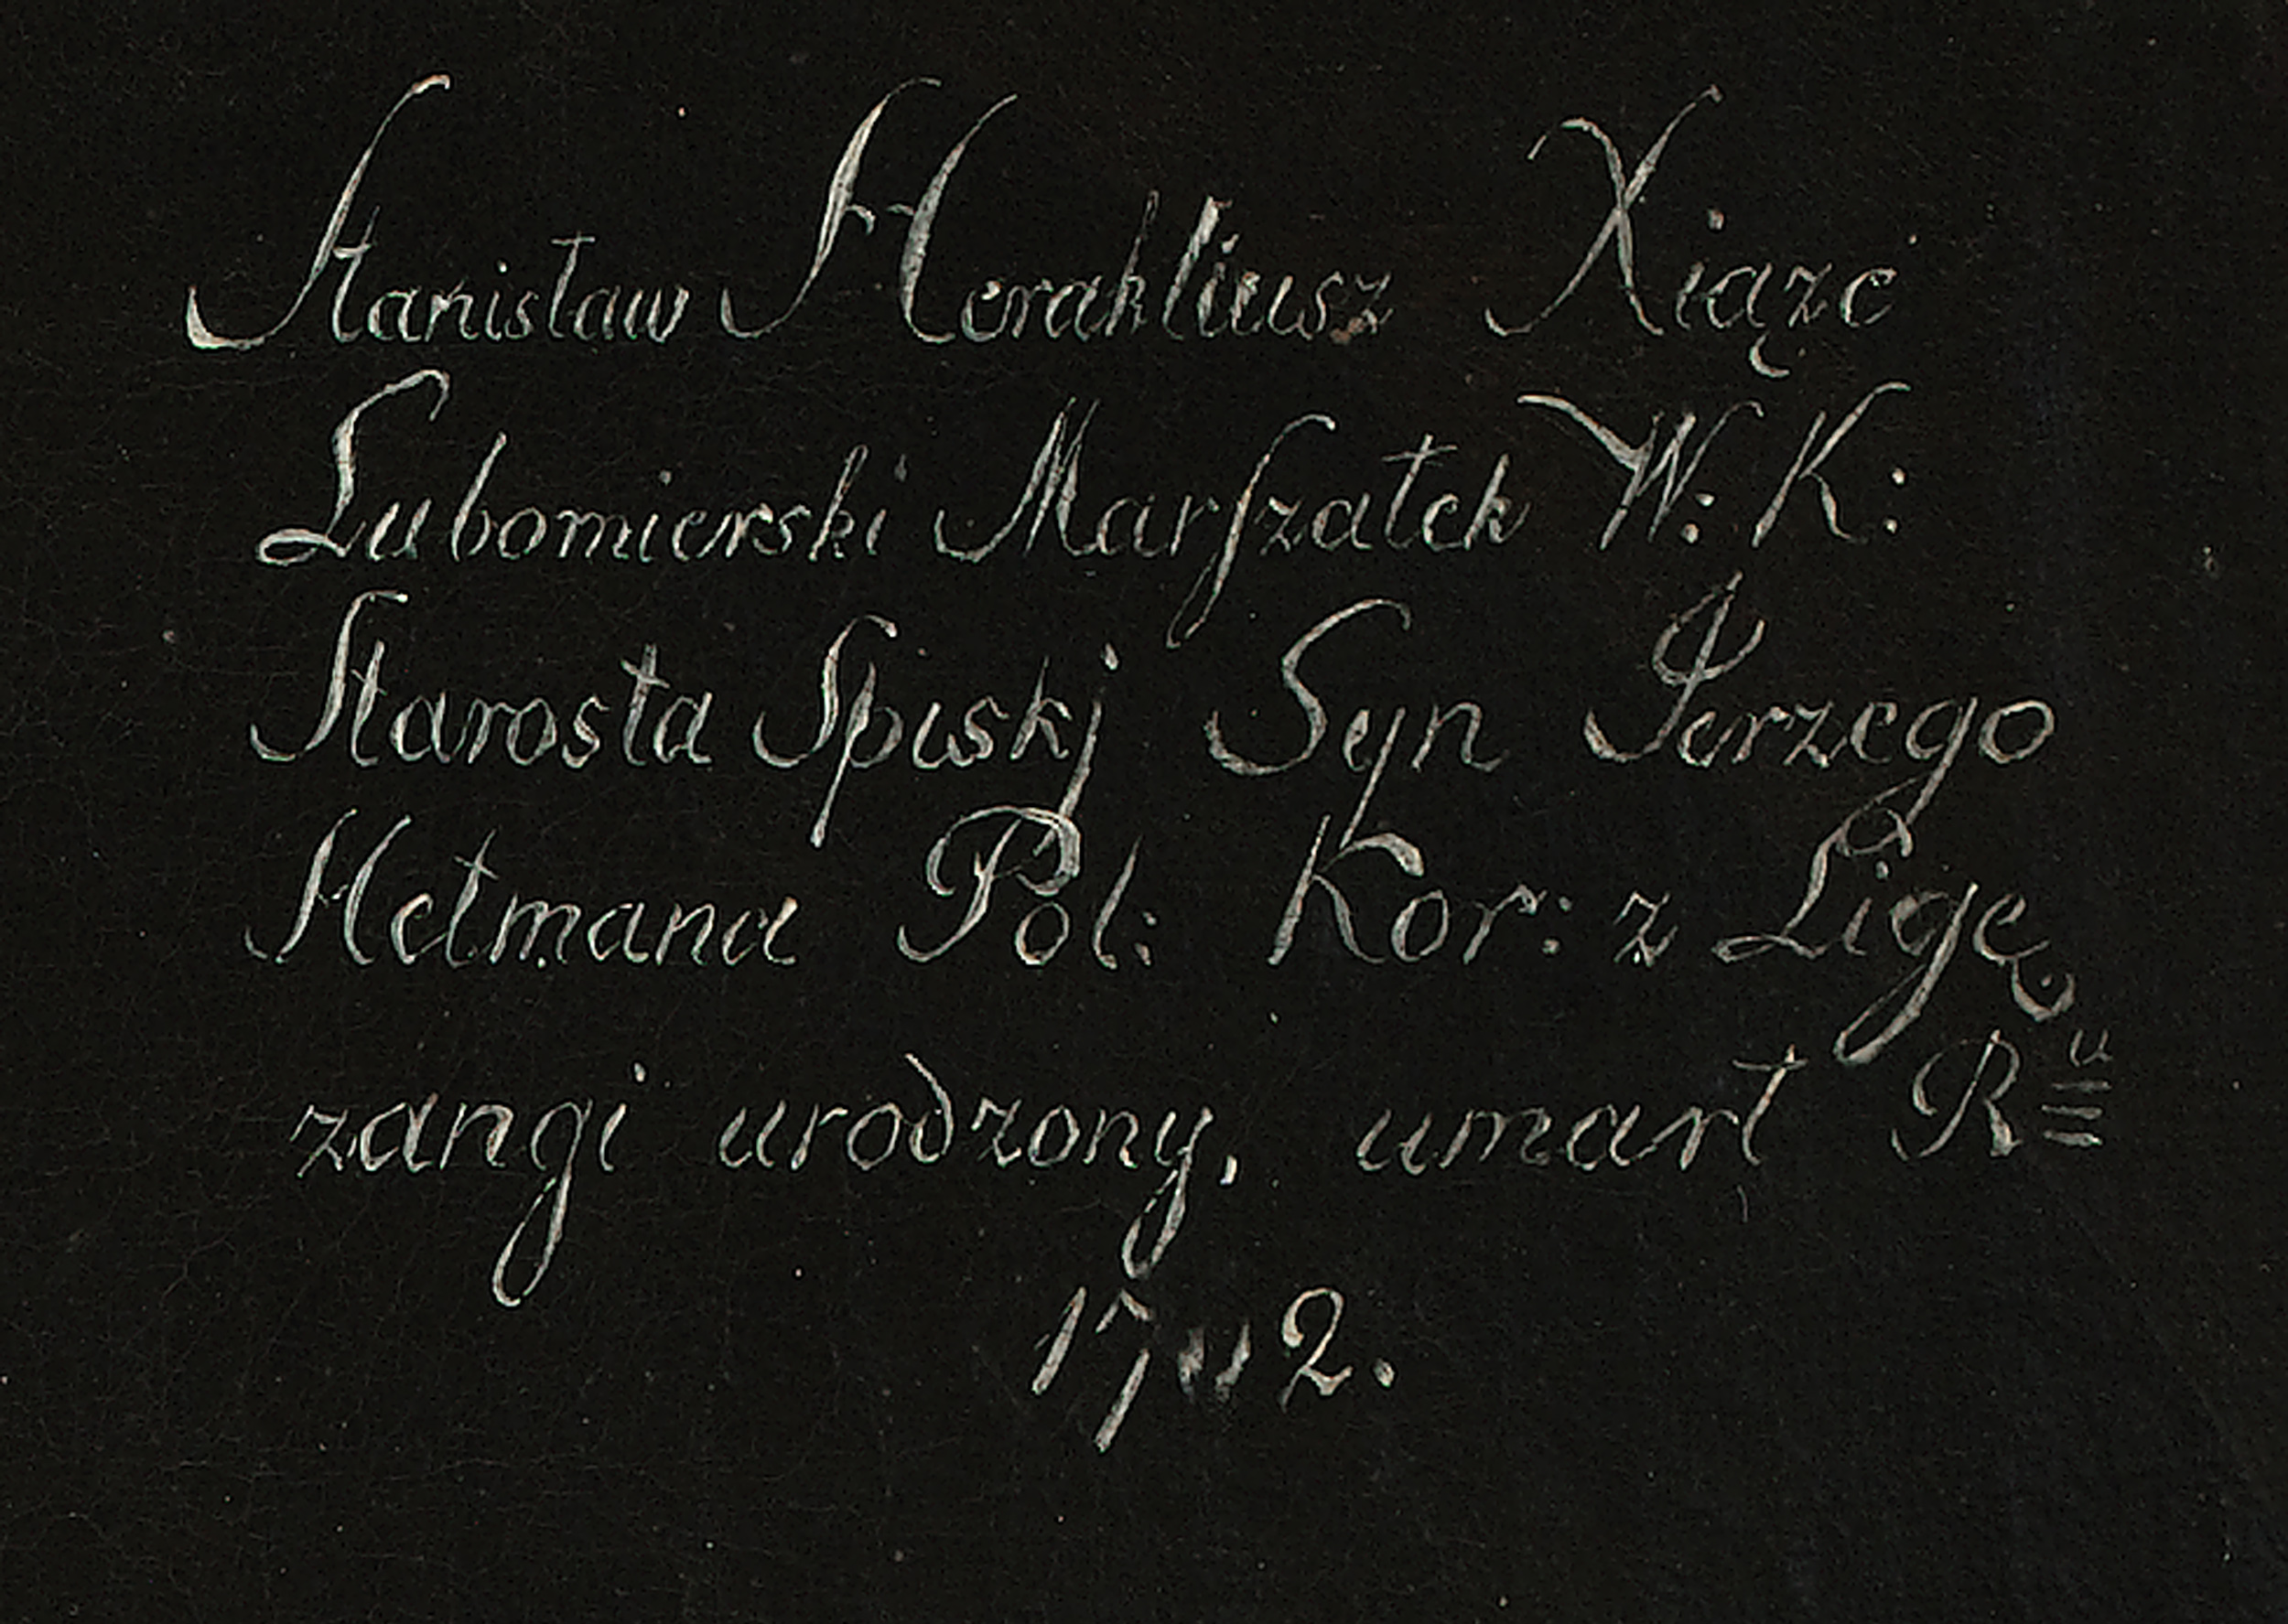 Stanisław Herakliusz Xiąże
Lubomierski Marſzałek W: K:
Starosta Spiskj Syn Jerzego
Hetmana Pol: Kor: z Ligę
zangi urodzony, umarł Rᵘ
1702.